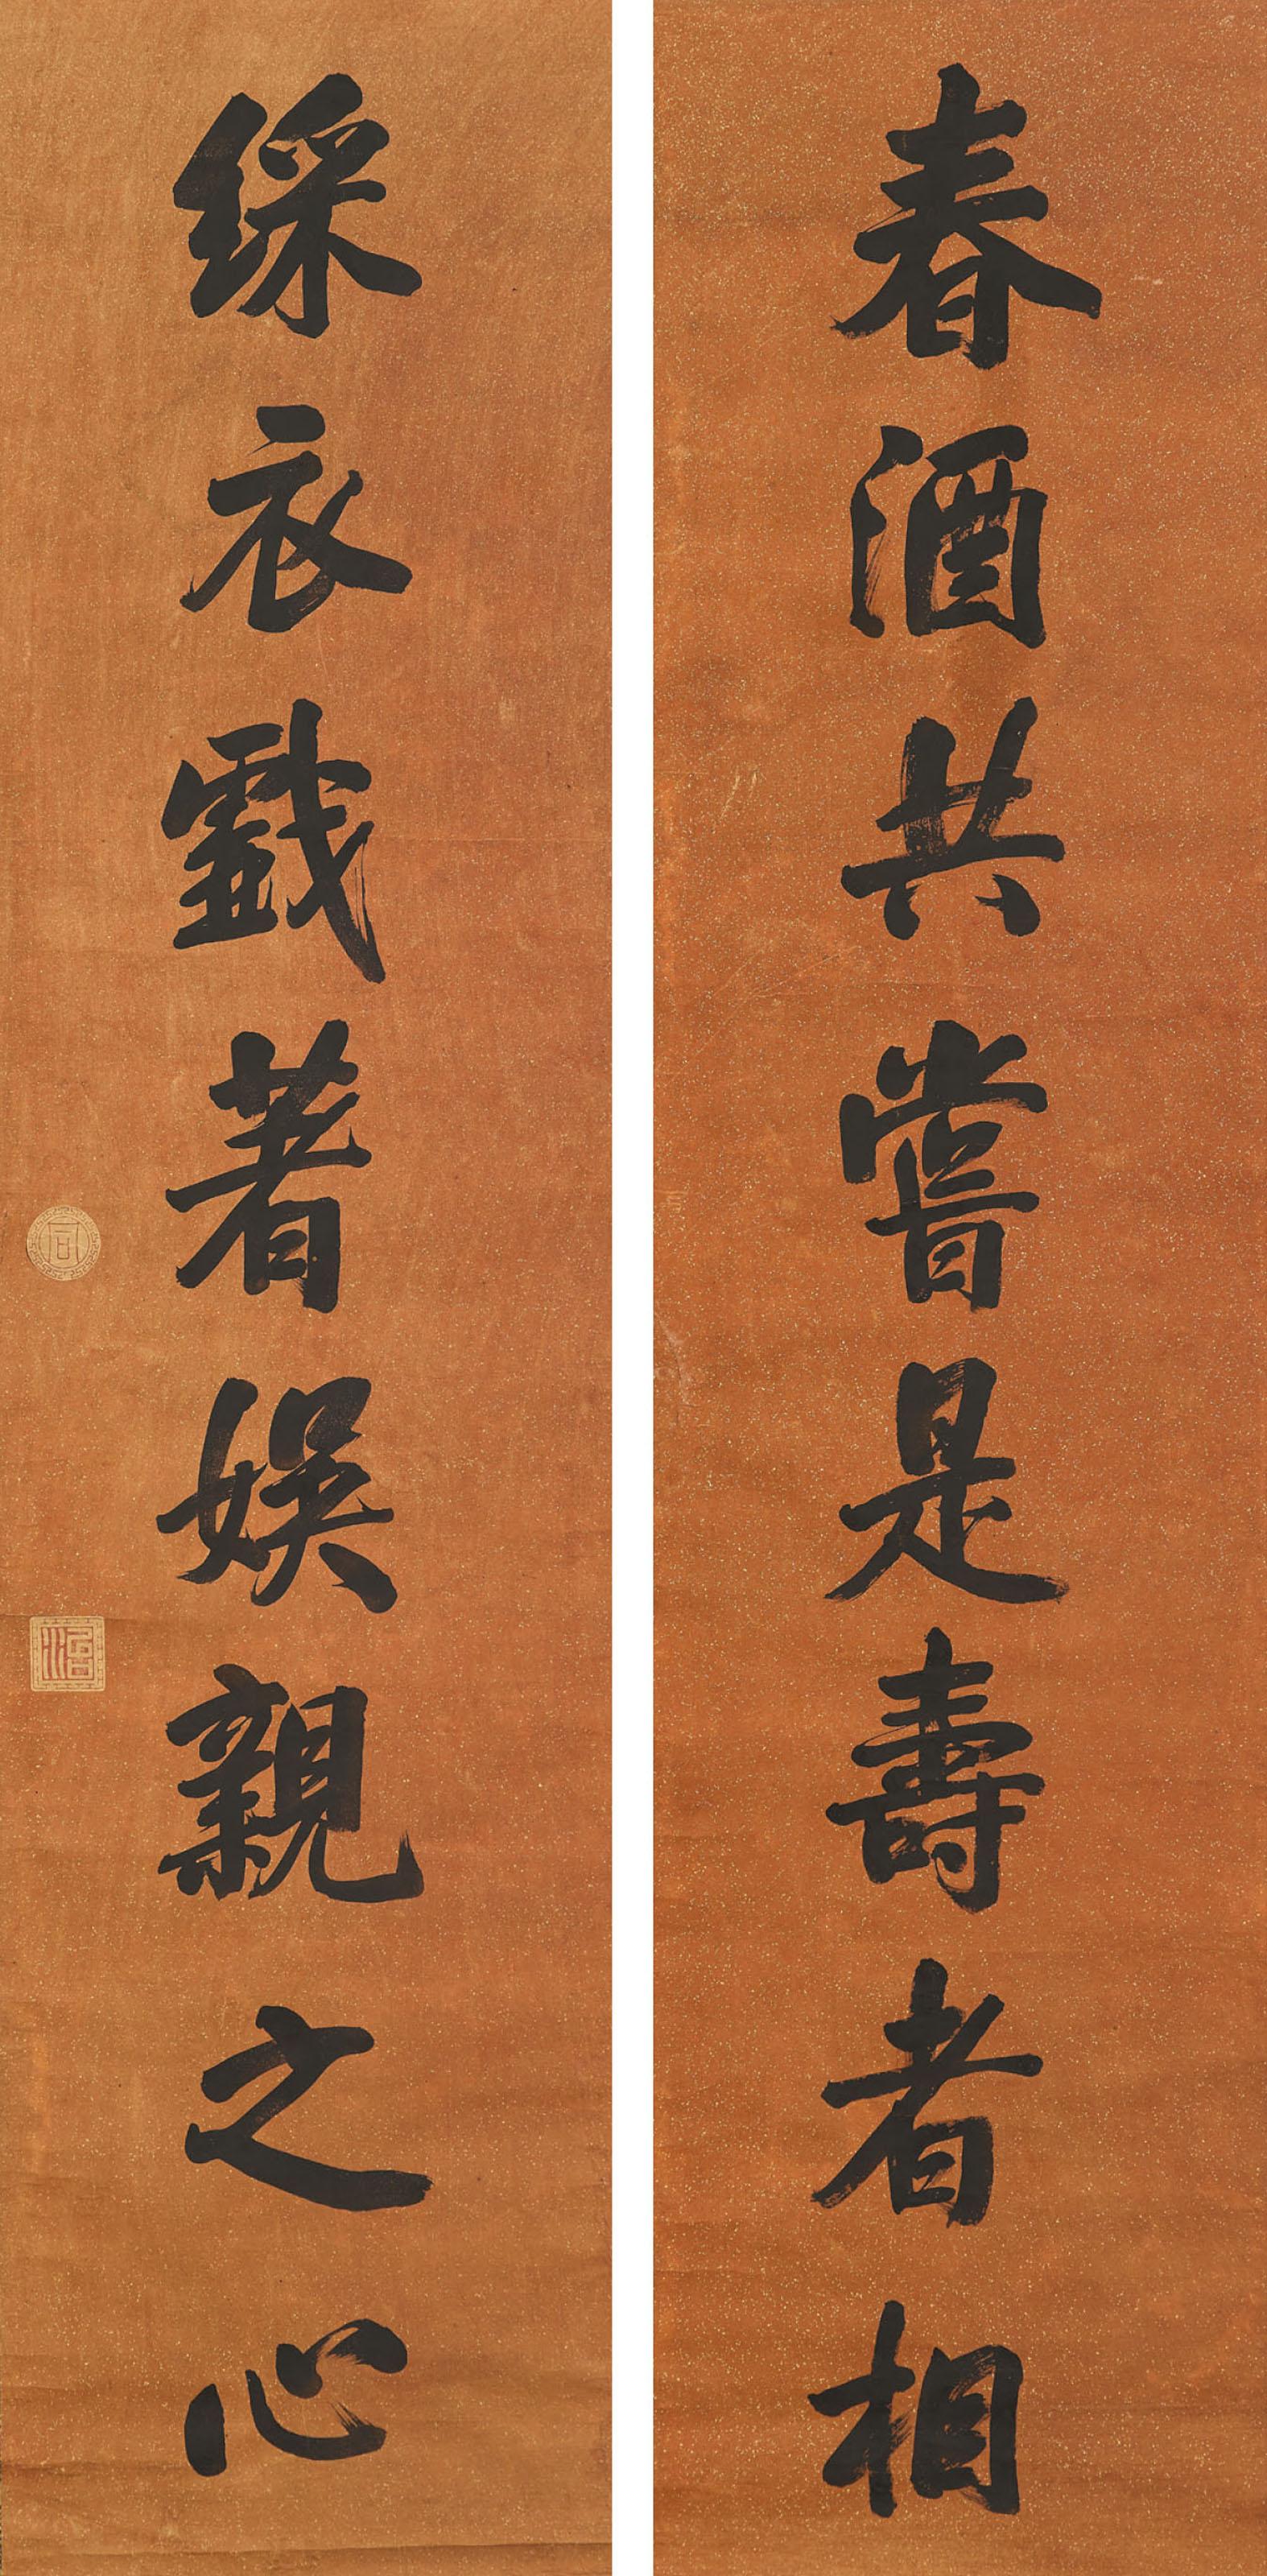 春酒共嘗是壽者相
綵衣戲著娛親之心